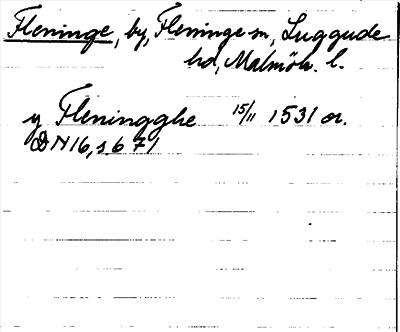 Fleninge, by, Fleninge sn, Luggude
hd, Malmöh. l.
y Fleningghe 15/11 1531 or.
DN 16, s 671